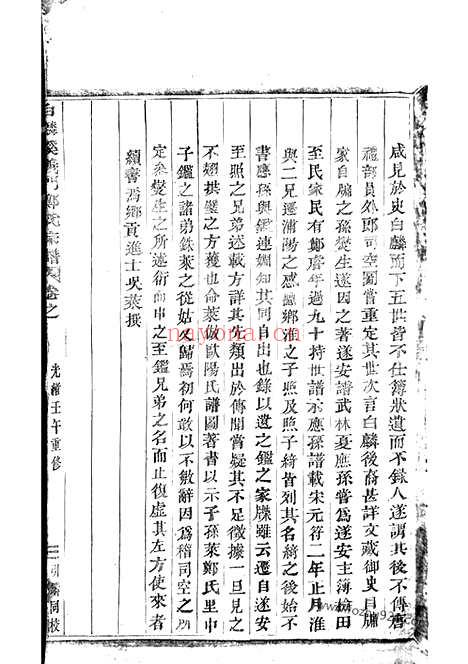 咸見於史白麟而下五世皆不仕簿狀遺而不錄人遂謂其後不傳唐
禮部員外郎司空圖嘗重定其世次言白麟後裔甚詳文藏御史自牖
家自牖之孫燮生遂因之著遂安譜武林夏應孫嘗為遂安主簿榆田
至民家民有鄭唐年過九十持世譜示應孫譜載宋元符二年正月淮
與二兄遷浦陽之感德鄉淮之子照及照子綺皆列其名綺之後始不
書應孫與鑑連姻知其同自出也錄以遺之鑑之家牒雖云遷自遂安
至照之兄弟述載方詳其先類出於傳聞嘗疑其不足徵據一旦見之
不翅拱璧之方獲也命萊倣歐陽氏譜圖著書以示子孫萊鄭氏里中
子鑑之諸弟鉄萊之從姑又歸焉初何敢以不敏辭因為稽司空之所
定糸燮生之所述銜而申之至鑑兄弟之名而止復虛其左方使來者
續書焉鄉貢進士吳萊撰
白麟溪義門鄭氏宗譜 卷之一
光緒壬午重修
nayona.cn